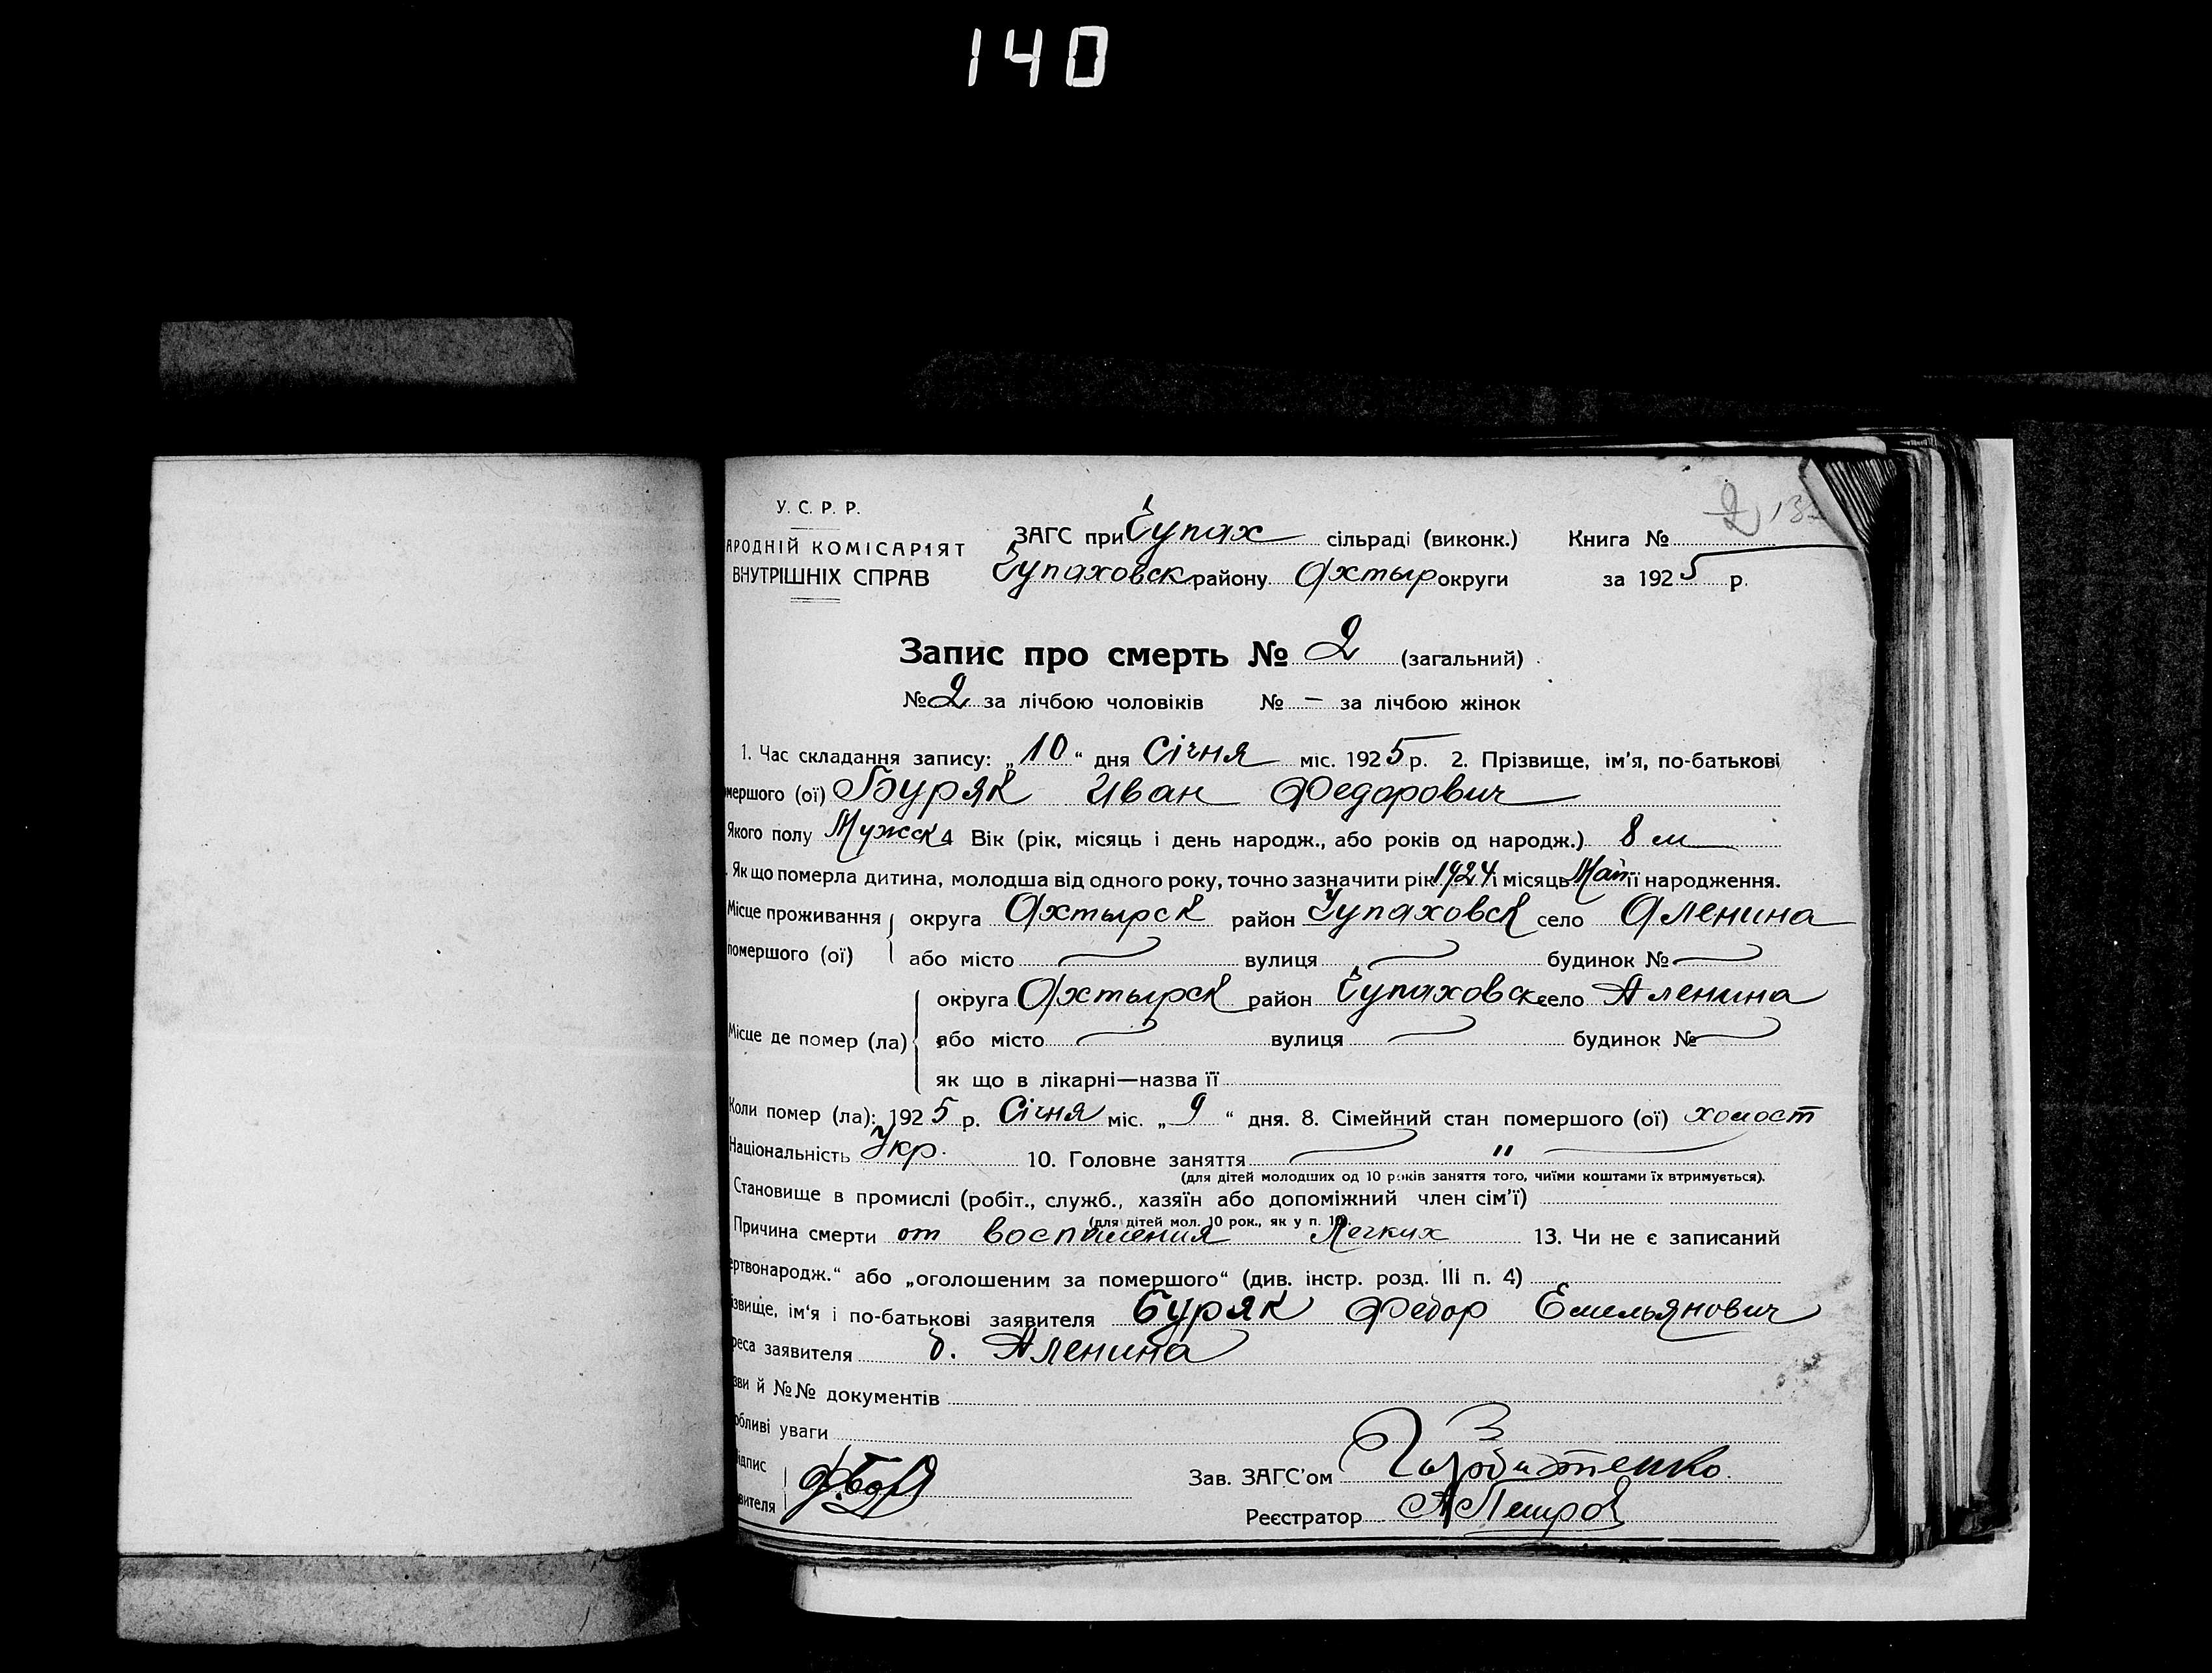 140
2 13
У. С. Р. Р.
АРОДНІЙ КОМІСАРІЯТ
ВНУТРІШНІХ СПРАВ
ЗАГС при Чупах сільраді (виконк.) Книга №
Чупаховск району Охтыр округи за 1925 р.
Запис про смерть № 2 (загальний)
№ 2 за лічбою чоловіків № — за лічбою жінок
1. Час складання запису: „10“ дня Січня міс. 1925 р. 2. Прізвище, ім'я, по-батькові
мершого (ої) Буряк Иван Федорович
Якого полу Мужск 4 Вік (рік, місяць і день народж., або років од народж.) 8 м
. Як що померла дитина, молодша від одного року, точно зазначити рік 1924 і місяць Май її народження.
Місце проживання округа Охтырск район Чупаховск село Оленина
помершого (ої) або місто — вулиця — будинок № —
округа Охтырск район Чупаховск село Аленина
Місце де помер (ла) або місто — вулиця — будинок № —
як що в лікарні—назва її
Коли помер (ла): 1925 р. Січня міс. „9“ дня. 8. Сімейний стан помершого (ої) холост
Національність Укр. 10. Головне заняття — " —
(для дітей молодших од 10 років заняття того, чиїми коштами їх втримується).
Становище в промислі (робіт., служб., хазяїн або допоміжний член сім'ї)
(для дітей мол. 10 рок., як у п. 10).
Причина смерти от воспаления Легких 13. Чи не є записаний
ертвонародж.“ або „оголошеним за помершого“ (див. інстр. розд. III п. 4)
ізвище, ім'я і по-батькові заявителя Буряк Федор Емельянович
реса заявителя д. Аленина
зви й №№ документів
обливі уваги
ідпис
вителя
Зав. ЗАГС'ом
Реєстратор А Петров